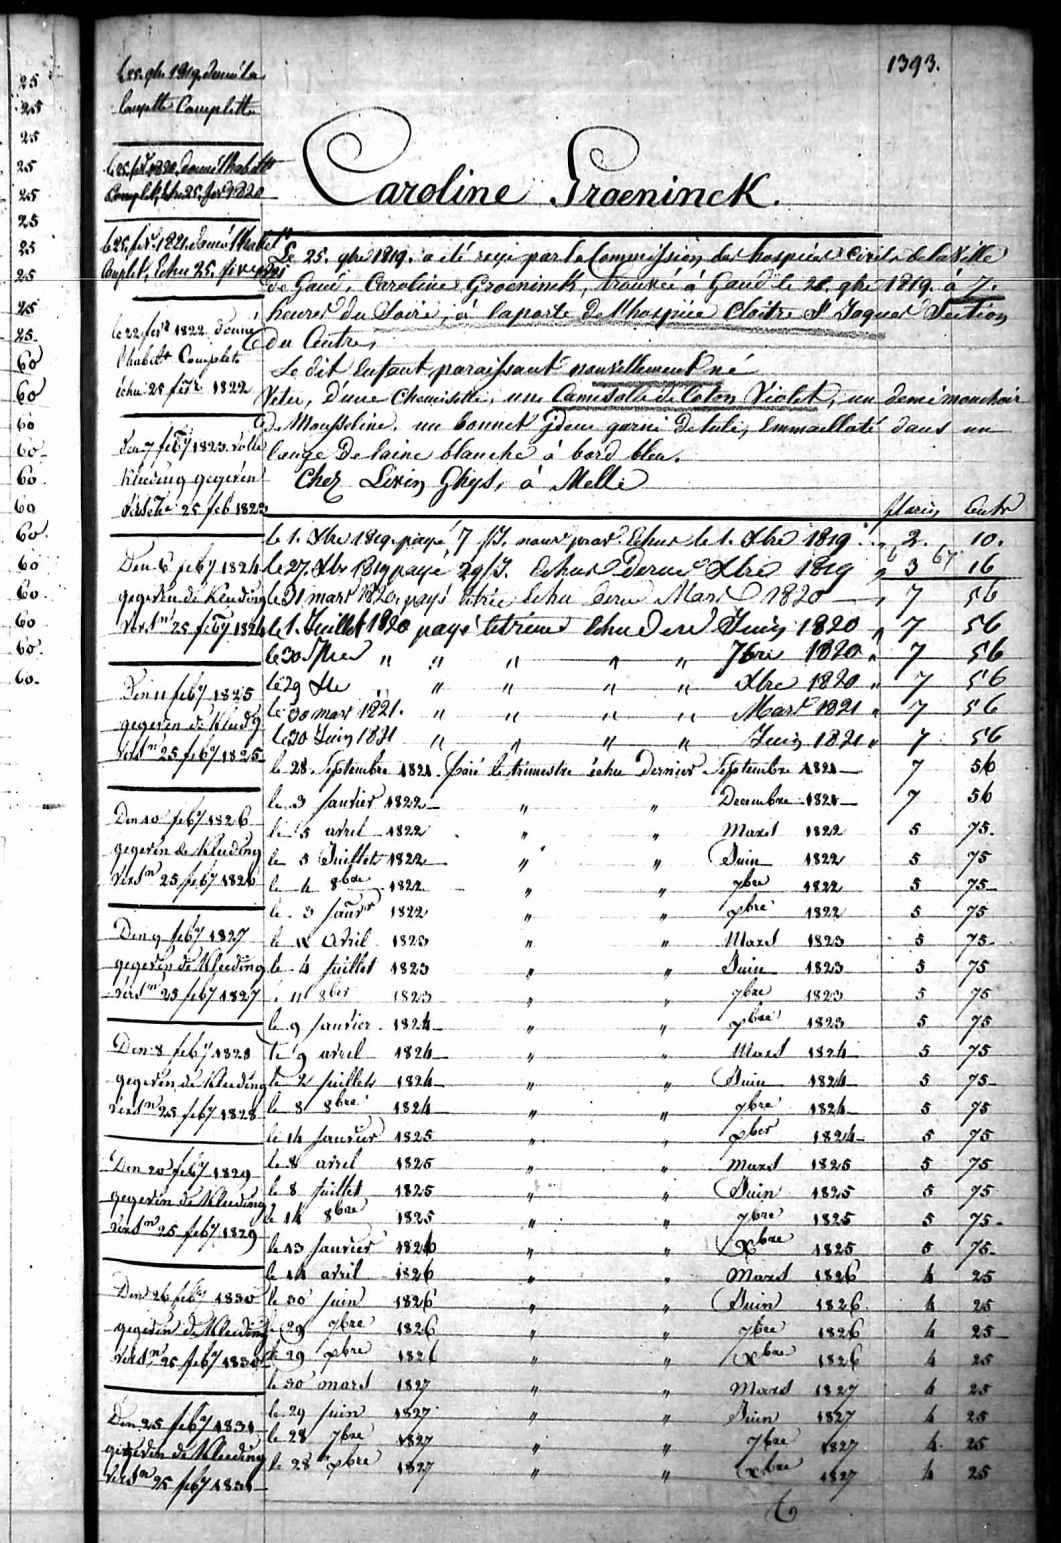 1393.
Caroline Groeninck.
Le 25. 9bre 1819. a été reçu par la Commission des hospices civils de la Ville
de Gand, Caroline Groeninck, trouvée à Gand le 25. 9bre 1819. à 7.
heures du Soire, à la porte de l'hospice Cloitre St Jaques Section
du Centre,
Le dit Enfant paraissant nouvellement né
Vetu, d'une Chemisette, une Camisolle de Coton Violet, un demi mouchoir
de Mousseline, un bonnet garni de tule, Emmailloté dans un
lange de laine blanche à bord bleu.
Chez Livin Ghys, à Melle
florins Cents
le 1. Xbre 1819 payé 7 Echus le 1. Xbre 1819 " 2. 10.
6 67
le 27. Xbre 1819 payé 29 Echus Dernr Xbre 1819 " 3 16
le 31 mars 1820 payé Echu Mars 1820 " 7 56
le 1. Juillet 1820 payé Echu Juin 1820 " 7 56
le 30 7bre " " " " " 7bre 1820 " 7 56
le 29 Xbre " " " " Xbre 1820 " 7 56
le 30 mars 1821. " " " " Mars 1821 " 7 56
le 30 Juin 1821 " " " " Juin 1821 " 7 56
le 28 Septembre 1821 Paié le trimestre échu Dernier Septembre 1821 7 56
le 3 Janvier 1822 " " Decembre 1821 7 56
le 5 avril 1822 " " Mars 1822 5 75
le 5 Juillet 1822 " " Juin 1822 5 75
le 4 8bre 1822 " " 7bre 1822 5 75
le 3 Janvr 1822 " " xbre 1822 5 75
le 12 Avril 1823 " " Mars 1823 5 75
le 4 Juillet 1823 " " Juin 1823 5 75
le 11 8bre 1823 " " 7bre 1823 5 75
le 9 Janvier 1824 " " xbre 1823 5 75
le 9 avril 1824 " " Mars 1824 5 75
le 2 Juillet 1824 " " Juin 1824 5 75
le 8 8bre 1824 " " 7bre 1824 5 75
le 14 Janvier 1825 " " xbre 1824 5 75
le 8 avril 1825 " " Mars 1825 5 75
le 8 Juillet 1825 " " Juin 1825 5 75
le 14 8bre 1825 " " 7bre 1825 5 75
le 13 Janvier 1826 " " Xbre 1825 5 75
le 14 avril 1826 " " Mars 1826 4 25
le 30 Juin 1826 " " Juin 1826 4 25
le 29 7bre 1826 " " 7bre 1826 4 25
le 29 xbre 1826 " " Xbre 1826 4 25
le 30 mars 1827 " " Mars 1827 4 25
le 29 Juin 1827 " " Juin 1827 4 25
le 28 7bre 1827 " " 7bre 1827 4 25
le 28 xbre 1827 " " Xbre 1827 4 25
le 25. 9bre 1819. donné la
layette Complette
le 25. fevr 1820. donné l'habillt
Complet, Echu 25. fevr 1820
le 25. fevr 1821. donné l'habillt
Complet, Echu 25. fevrier
le 22 fevr 1822 donné
l'habillt Complete
échu 25 fevr 1822
Den 7 feby 1823 volle
Kleeding gegeven
25 feb 1823
Den 6 feby 1824
gegeven de Kleeding
versn 25 feby 1824
Den 11 feby 1825
gegeven de Kleedg
versn 25 feby 1825
Den 10 feby 1826
gegeven de Kleeding
versn 25 feby 1826
Den 9 feby 1827
gegeven de Kleeding
versn 25 feby 1827
Den 8 feby 1828
gegeven de Kleeding
versn 25 feby 1828
Den 20 feby 1829
gegeven de Kleeding
versn 25 feby 1829
Den 26 feby 1830
gegeven de Kleeding
versn 25 feby 1830
Den 25 feby 1831
gegeven de Kleeding
versn 25 feby 1831
25
25
25
25
25
25
25
25
25
25
60
60
60
60
60
60
60
60
60
60
60
60